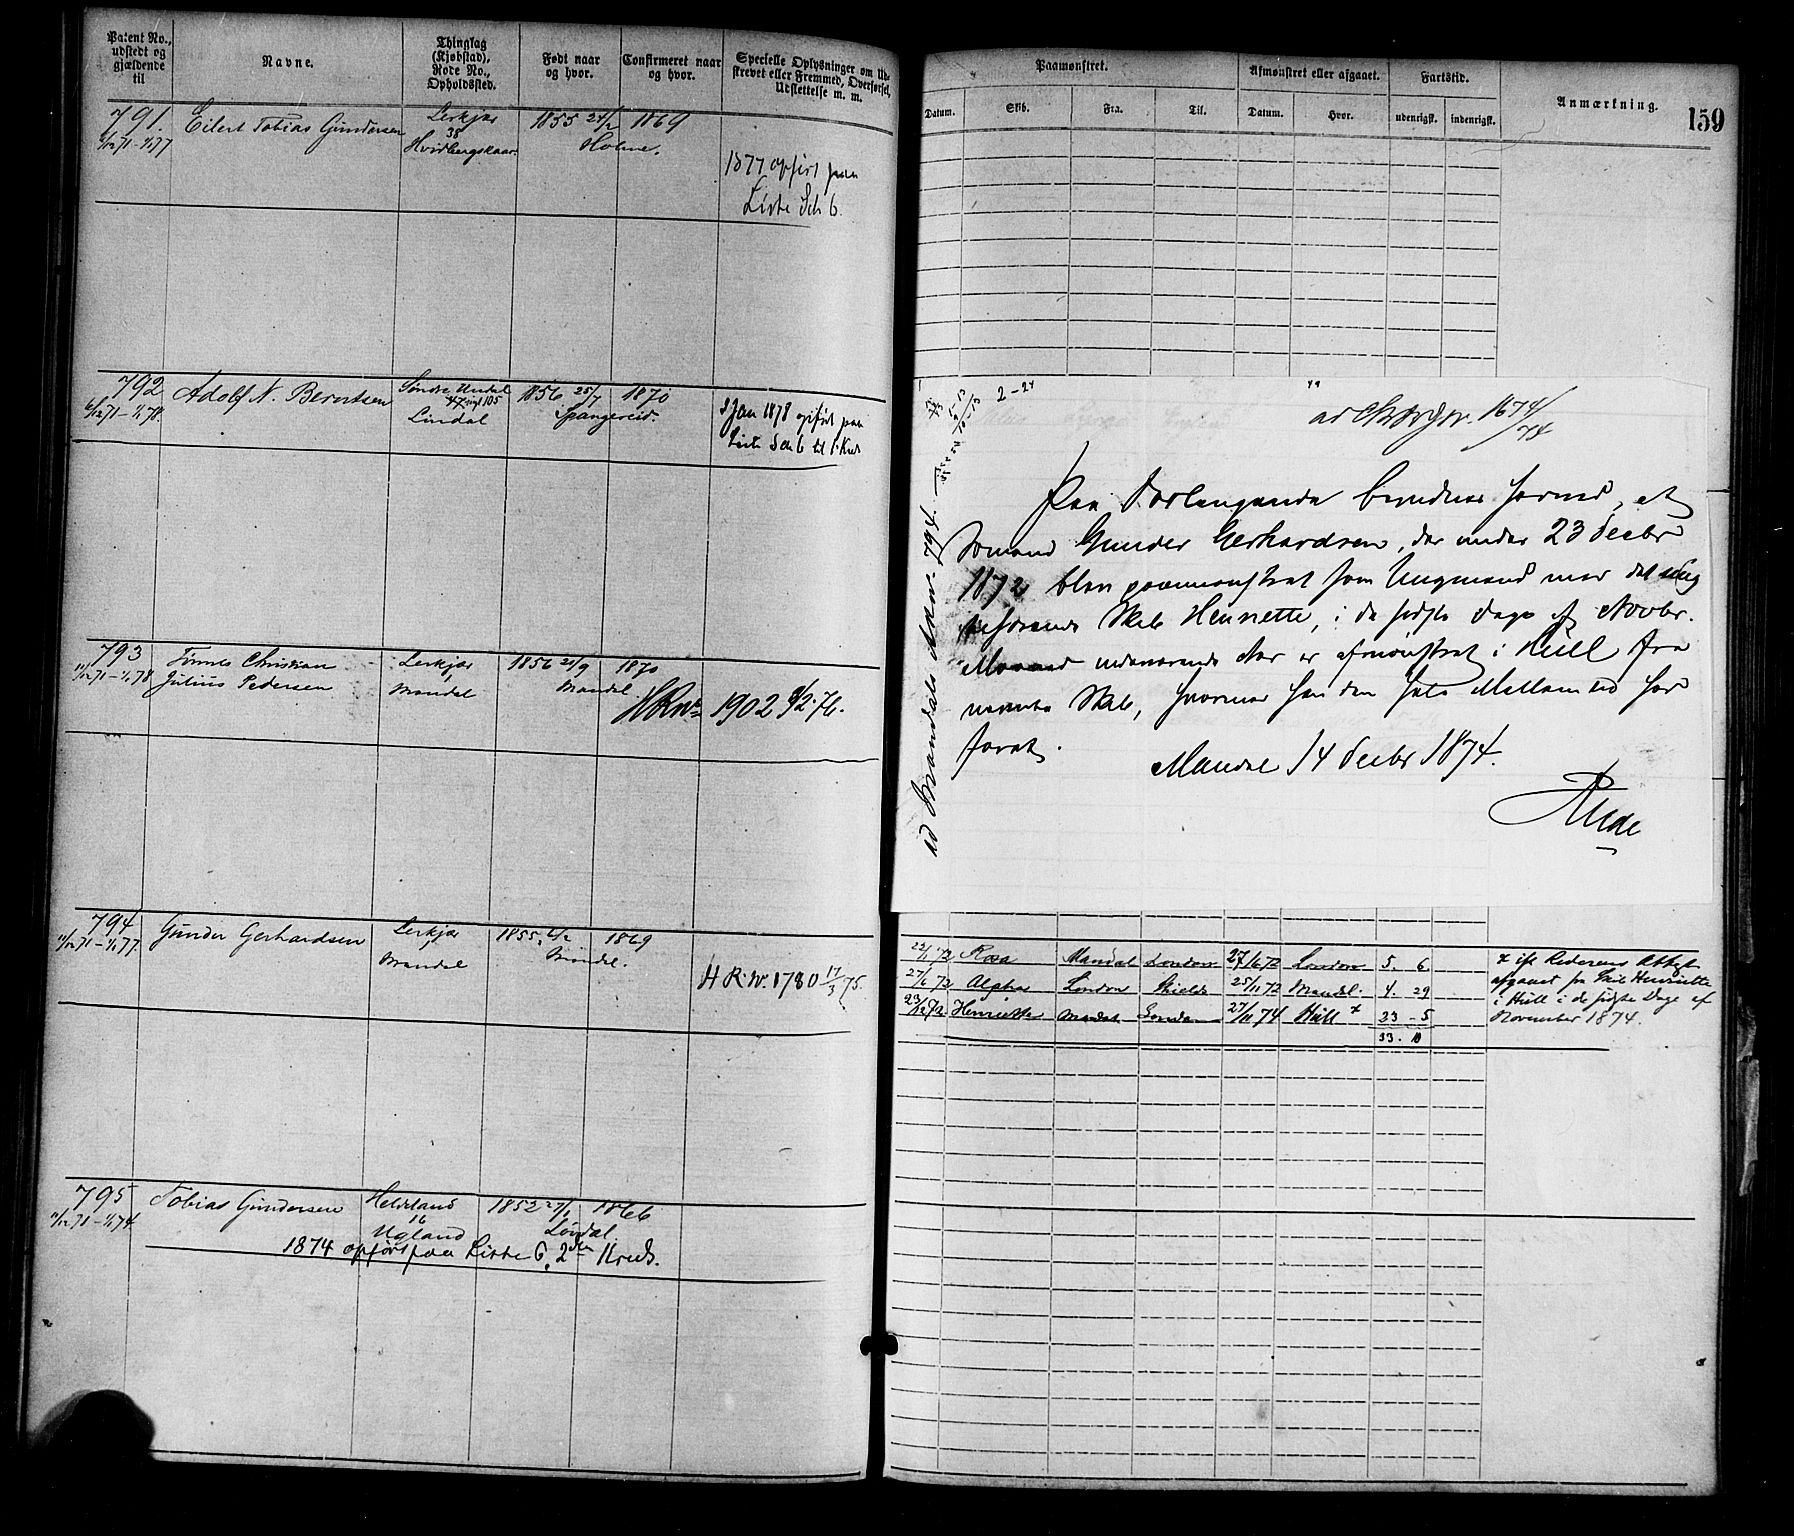 Patent No., udstedt og gjældende til
Navne.
Thinglag (Kjøbstad), Rode No., Opholdssted.
Født naar og hvor.
Confirmeret naar og hvor.
Specielle Oplysninger om Udskrevet eller Fremmed, Overførsel, Udslettelse m. m.
791.
Eilert Tobias Gundersen
Lerkjær
1855 24/2 1869
6/12 71 - 1/1 77
38
Hvidbergskaar.
Holme.
1877 opført paa
Liste Sch 6.
792
Adolf N. Berntsen
Søndre Undal
1856 25/7 1870
6/12 71 - 1/1 78.
47 105
Lindal
Spangereid.
Jan 1878 opført paa
Liste Sch 6 til 1 Kreds
793
Tønnes Christian
Lerkjær
1856 21/9 1870
11/12 71 - 1/1 78
Julius Pedersen
Mandal
Mandal.
H R No 1902 9/2 76.
794
Gunder Gerhardsen
Lerkjær
1855 6/2 1869
11/12 71 - 1/1 77.
Mandal
Mandal.
H R No. 1780 17/3 75.
795
Tobias Gundersen
Helvland
1852 27/1 1866
11/12 71 - 1/1 74.
16
Ugland
Løvdal
1874 opført paa Liste 6, 2den Kreds.
Paamønstret.
Afmønstret eller afgaaet.
Fartstid.
Anmærkning.
159
Datum.
Skib.
Fra.
Til.
Datum.
Hvor.
udenrigsk.
indenrigsk.
2 - 24
1674/74
Paa Forlangende bevidnes herved, at
Sømand Gunder Gerhardsen, der under 23 Decbr
1872 blev paamønstret som Ungmand med det
Skib Henriette, i de sidste Dage af Novbr.
Maaned indeværende Aar er afmønstret i Hull fra
nævnte Skib, hvormed han den hele Mellemtid har
faret.
Mandal 14 Decbr 1874.
ad Mandals 794.
22/1 72 Rosa Mandal London 27/6 72 London 5. 6
27/6 72 Alpha London Shields 25/11 72 Mandal. 4. 29
23/12 72. Henriette Mandal London 27/11 74 Hull x 23 - 5
33. 10
x ifl Rederens Attest
afgaaet fra Skib Henriette
i Hull i de sidste Dage af
November 1874.